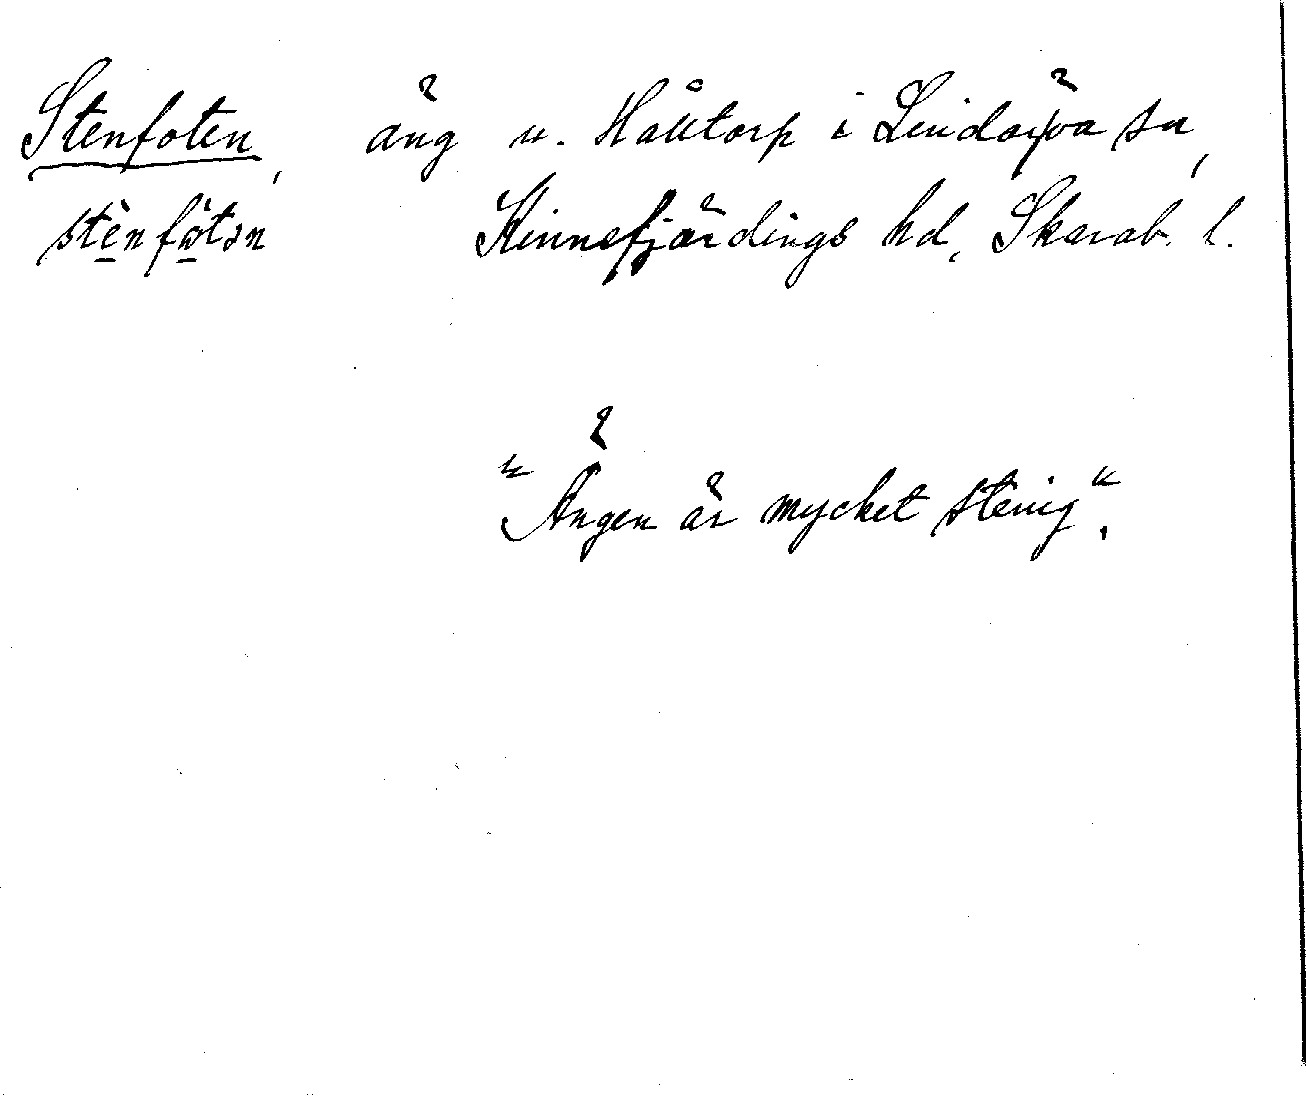 Stenfoten, äng u. Hålltorp i Lindärva sn,
stènfòtən Kinnefjärdings hd, Skarab. l.
"Ängen är mycket stenig".